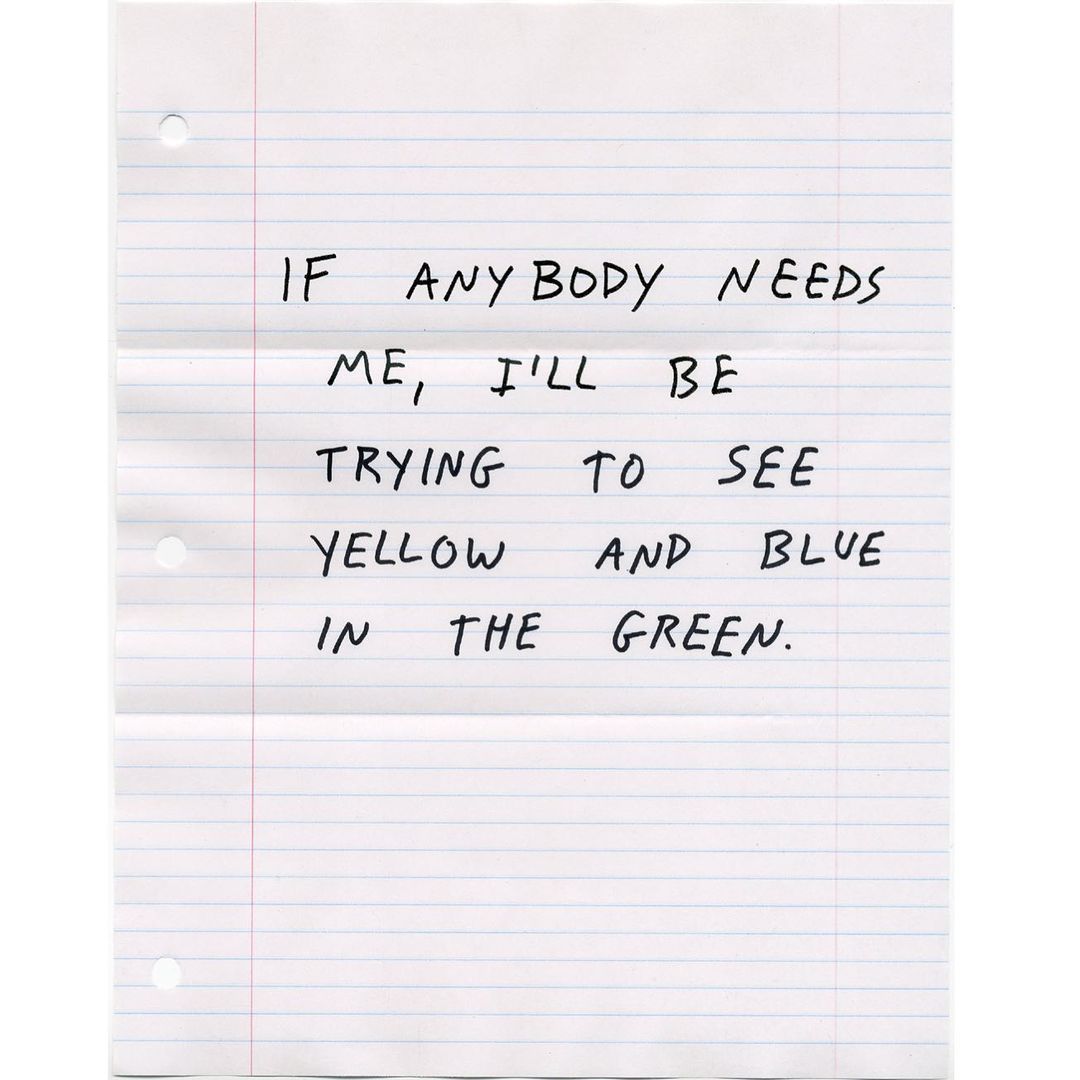 IF ANYBODY NEEDS
ME, I'LL BE
TRYING TO SEE
YELLOW AND BLUE
IN THE GREEN.